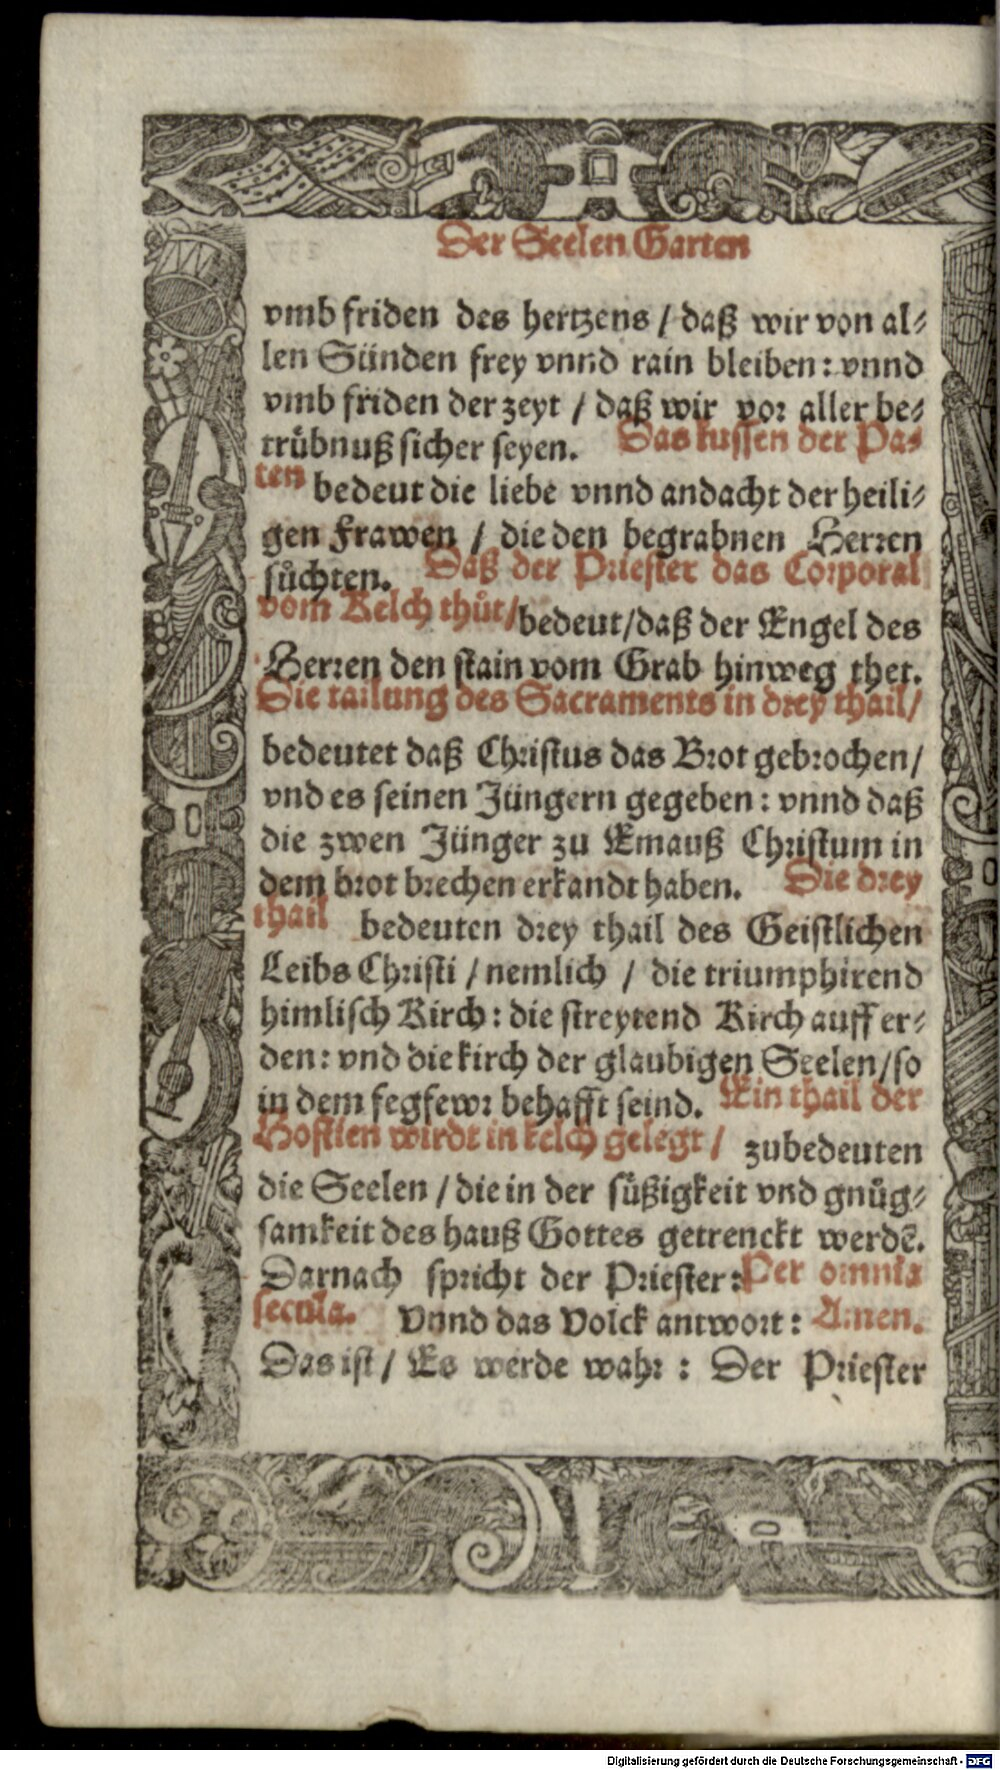 Der Seelen Garten
vmb friden des hertzens / daß wir von al⸗
len Sünden frey vnnd rain bleiben: vnnd
vmb friden der zeyt / daß wir vor aller be⸗
trůbnuß sicher seyen. Das kussen der Pa⸗
ten bedeut die liebe vnnd andacht der heili⸗
gen Frawen / die den begrabnen Herren
sůchten. Daß der Priester das Corporal
vom Kelch thůt / bedeut / daß der Engel des
Herren den stain vom Grab hinweg thet.
Die tailung des Sacraments in drey thail /
bedeutet daß Christus das Brot gebrochen /
vnd es seinen Jüngern gegeben: vnnd daß
die zwen Jünger zu Emauß Christum in
dem brot brechen erkandt haben. Die drey
thail bedeuten drey thail des Geistlichen
Leibs Christi / nemlich / die triumphirend
himlisch Kirch: die streytend Kirch auff er⸗
den: vnd die kirch der glaubigen Seelen / so
in dem fegfewr behafft seind. Ein thail der
Hostien wirdt in kelch gelegt / zubedeuten
die Seelen / die in der süßigkeit vnd gnůg⸗
samkeit des hauß Gottes getrenckt werdē.
Darnach spricht der Priester: Per omnia
secula. Vnnd das Volck antwort: Amen.
Das ist / Es werde wahr: Der Priester
Digitalisierung gefördert durch die Deutsche Forschungsgemeinschaft - DFG